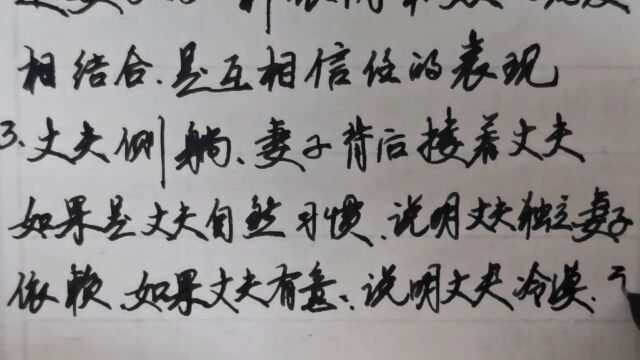 相结合.是互相信任的表现
3.丈夫侧躺、妻子背后搂着丈夫
如果是丈夫自然习惯、说明丈夫独立妻子
依赖.如果丈夫有意:说明丈夫冷漠.